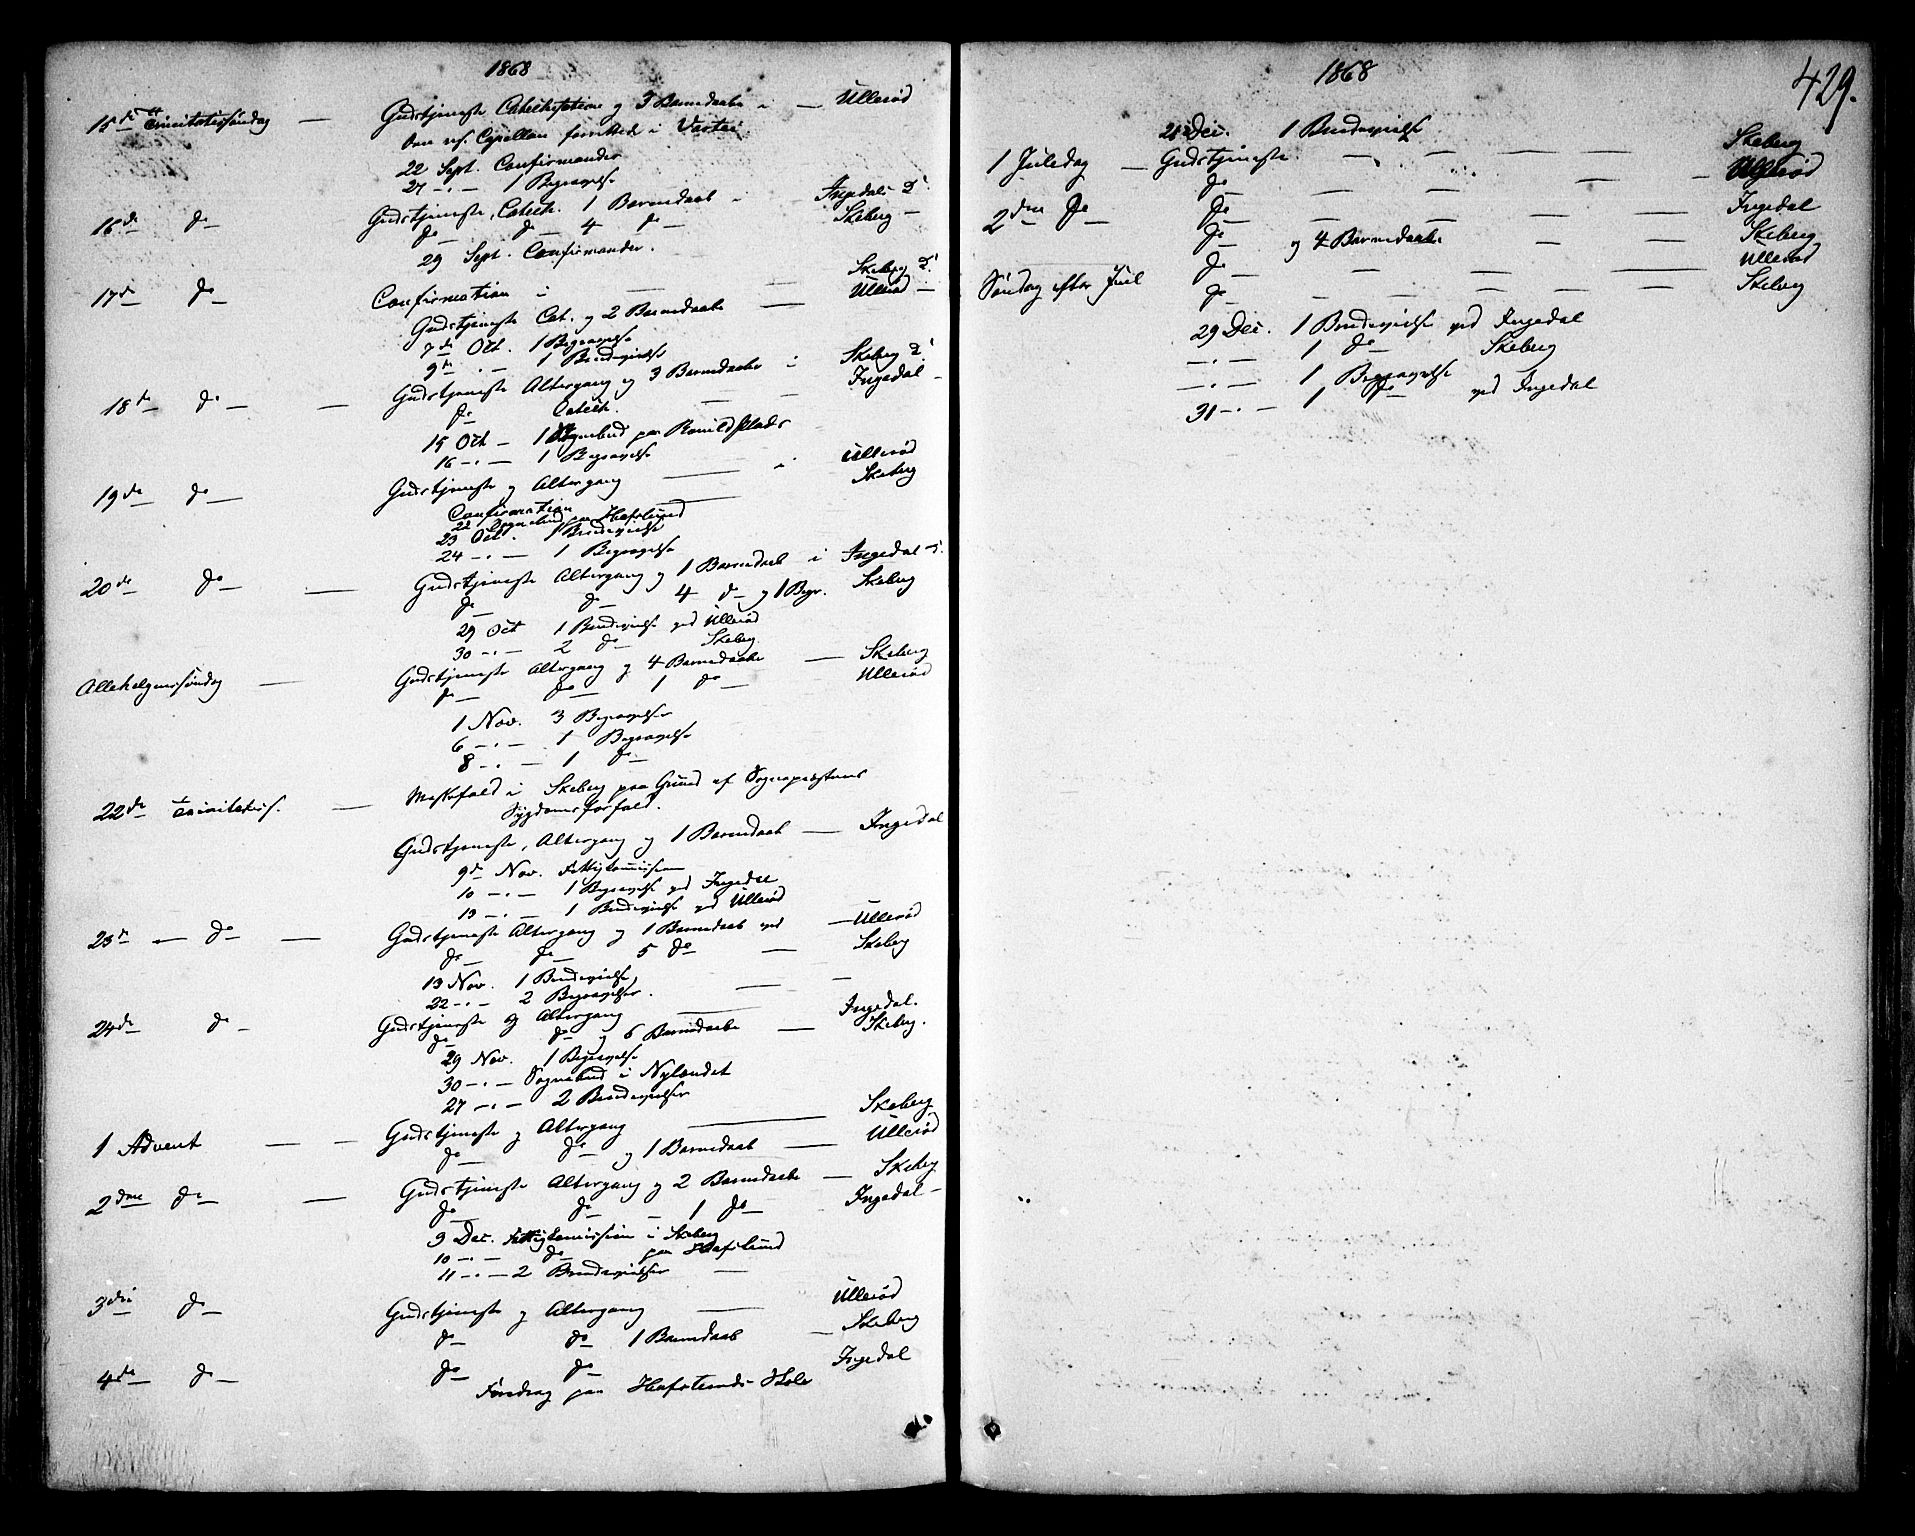 1868
15de Trinitatissöndag — Gudstjeneste Catechisation og 3 Barnedaabe i — Ullerød
Den res. Capellan forrettede i Varteig
22 Sept. Confirmander
27 -"- 1 Begravelse
16de do — Gudstjeneste, Catech. 1 Barnedaab i — Ingedal
do — do — 4 do — Skeberg —
29 Sept. Confirmander.
17de do — Confirmation i — — Skeberg
Gudstjeneste Cat. og 2 Barnedaabe — Ullerød —
7de Oct. 1 Begravelse
9de -"- 1 Brudevielse
18de do — — Gudstjeneste Altergang og 3 Barnedaabe i Skeberg
do Catech. — — Ingedal —
15 Oct — 1 Sognebud paa
16 -"- 1 Begravelse
19de do — Gudstjeneste og Altergang — i Ullerød
Confirmation — Skeberg
22 Sognebud paa Hafslund
23 Oct. 1 Brudevielse
24 -"- 1 Begravelse
20de do — — Gudstjeneste Altergang og 1 Barnedaab i Ingedal
do — do — 4 do — og 1 Begr. Skeberg
29 Oct 1 Brudevielse ved Ullerød
30 -"- 2 do Skeberg
Allehelgenssöndag — Gudstjeneste Altergang og 4 Barnedaabe — Skeberg
do — do — 1 do — Ullerød
1 Nov. 3 Begravelser
6 -"- 1 Begravelse
8 -"- 1 do
22de Trinitatiss. — Messefald i Skeberg paa Grund af Sognepræstens
Sygdomsforfald.
Gudstjeneste, Altergang og 1 Barnedaab — Ingedal
9de Nov. Fattigkommission
10 -"- 1 Begravelse ved Ingedal
13 -"- 1 Brudevielse ved Ullerød
23de — do — — Gudstjeneste Altergang og 1 Barnedaab ved — Ullerød
do — do — 5 do — Skeberg
13 Nov. 1 Brudevielse — —
22 -"- 2 Begravelser.
24de do — Gudstjeneste og Altergang — Ingedal.
do — do og 6 Barnedaabe — Skeberg.
29 Nov. 1 Begravelse
30 -"- Sognebud i Nylandet
27 -"- 2 Brudevielser
1 Advent — — Gudstjeneste og Altergang — Skeberg
do — do — og 1 Barnedaab — Ullerød
2den do — — Gudstjeneste Altergang og 2 Barnedaabe — Skeberg
do do — 1 do — Ingedal —
9 Dec. Fattigkommission i Skeberg
10 -"- do paa Hafslund
11 -"- 2 Brudevielser —
3die do — Gudstjeneste og Altergang — Ullerød
do — do 1 Barnedaab — Skeberg
4de do — do — do — Ingedal
Foredrag paa Hafslunds Skole
1868
429.
21 Dec. 1 Brudevielse Skeberg
1 Juledag — Gudstjeneste — — — — Ullerød
do — — — — — Ingedal
2den do — do — — — — — Skeberg
do — og 4 Barnedaabe — — Ullerød
Søndag efter Juul do — — — — — Skeberg
do — — — — —
29 Dec. 1 Brudevielse ved Ingedal
-"- 1 do — Skeberg
-"- 1 Begravelse
31 -"- 1 do ved Ingedal